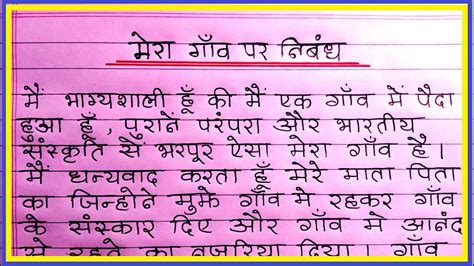 मेरा गाँव पर निबंध
मैं भाग्यशाली हूँ की मैं एक गाँव में पैदा
हुआ हूँ , पुरानें परंपरा और भारतीय
संस्कृति सें भरपूर ऐसा मेरा गाँव है।
मैं धन्यवाद करता हूँ मेरे माता पिता
का जिन्होने मुझे गाँव मे रहकर गाँव
के संस्कार दिए और गाँव मे आनंद
से रहने का नजरिया दिया । गाँव